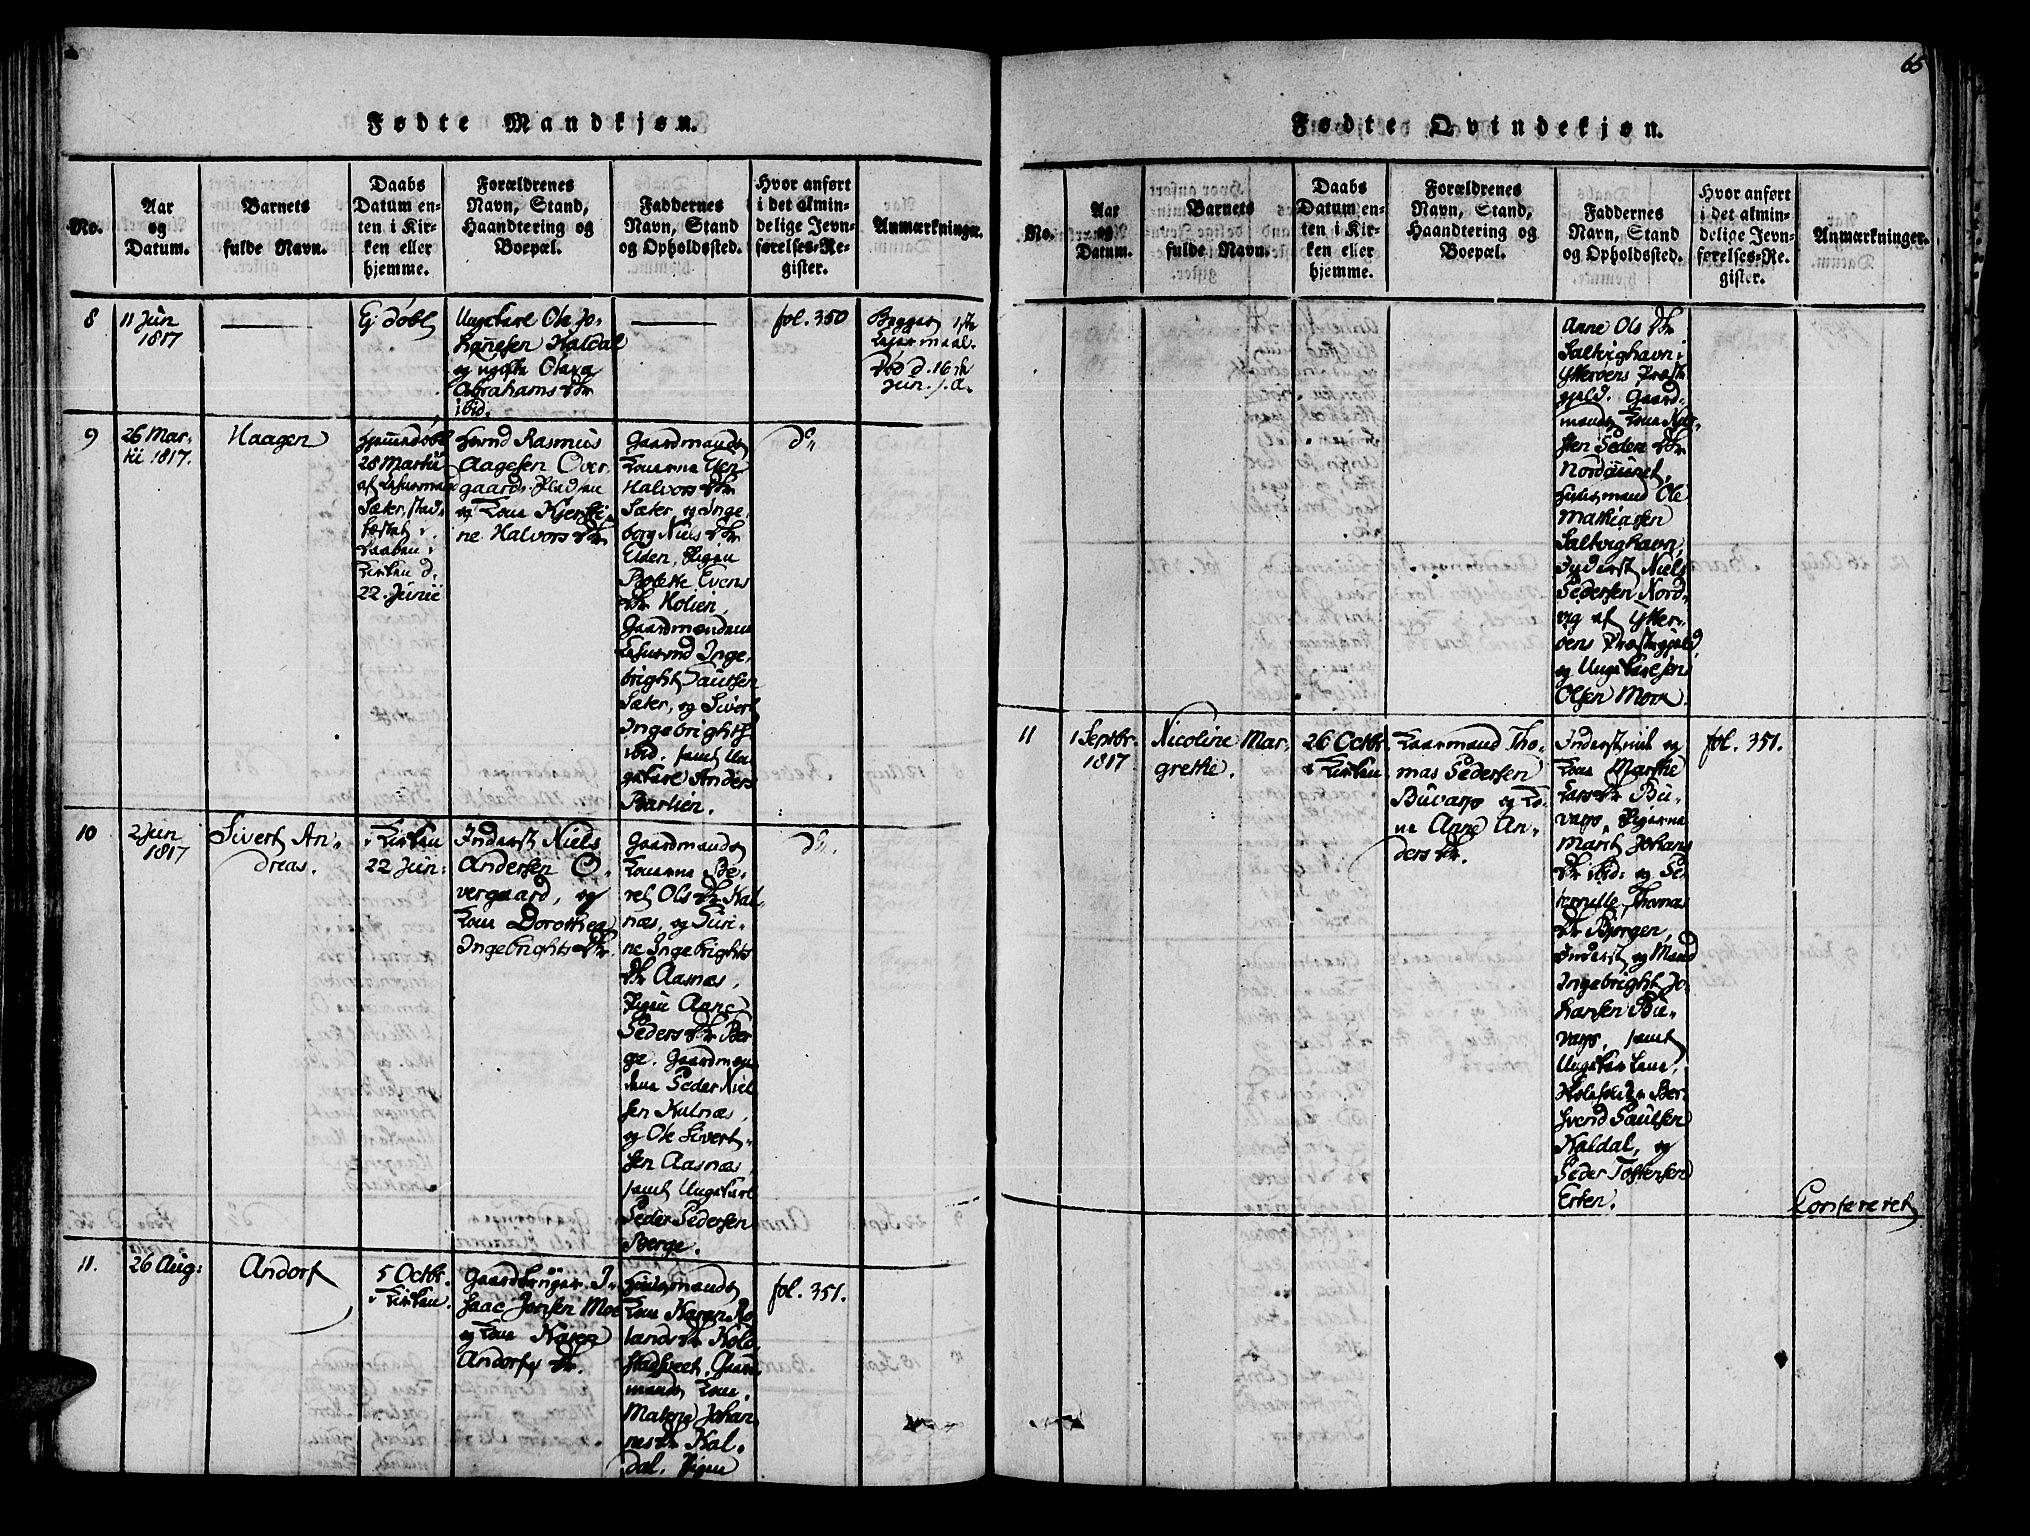 65
Fødte Mandkjøn.
No.
Aar
og
Datum.
Barnets
fulde Navn.
Daabs
Datum en-
ten i Kir-
ken eller
hjemme.
Forældrenes
Navn, Stand,
Haandtering og
Boepæl.
Faddernes
Navn, Stand
og Opholdssted.
Hvor anført
i det almin-
delige Jevn-
førelses-Re-
gister.
Anmærkninger.
8
11 Jun
1817
Ej døbt
Ungekarl Ole Jo-
hannesen Kaldal
og
Abrahams Dtr
ibid.
fol. 350
Begges 1ste
Lejermaal.
Død d. 16de
Jun. s.a.
9
26 Mar-
tii 1817.
Haagen
Hjemmedøbt
28 Martii
af
Sæter, stad-
fæstet i
Daaben i
Kirken d.
22 Junii
Rasmus
Aagesen Over-
gaards
og Kone Kjersti-
ne Halvors Dtr
Gaardmands
Konerne
Halvors Dtr
Sæter, og Inge-
borg Niels Dtr
Elden, Pigen
Evens
Dtr Holien,
Gaardmændene
Inge-
bright Paulsen
Sæter, og Sivert
Ingebrights
ibid. samt Un-
gekarl Anders
Barlien.
do
10
2 Jun
1817
Sivert An-
dreas.
i Kirken
22 Jun:
Inderst Niels
Andersen O-
vergaard, og
Kone Dorothea
Ingebrights Dtr.
Gaardmands
Konerne Be-
ret Ols Dtr Kal-
næs, og Siri-
ne Ingebrights
Dtr Aasnæs,
Pigen Anne
Peders Dtr Ber-
ge. Gaardmæn-
dene Peder Niel-
sen Kalnæs,
og Ole Sivert-
sen Aasnæs,
samt Ungekarl
Peder Pedersen
Berge.
do
11.
26 Aug:
Andorf
5 Octbr.
i Kirken
Gaardbruger I-
saac Jonsen Moe
og Kone Karen
Andorfs Dtr.
Huusmands
Kone Karen Ro-
lands Dtr Kold-
stad
mands Kone
Malene Johan-
nes Dtr Kal-
dal. Pigen
fol. 351.
Fødte Qvindekjøn.
No.
Aar
og
Datum.
Barnets
fulde Navn.
Daabs
Datum en-
ten i Kir-
ken eller
hjemme.
Forældrenes
Navn, Stand,
Haandtering og
Boepæl.
Faddernes
Navn, Stand
og Opholdssted.
Hvor anført
i det almin-
delige Jevn-
førelses-Re-
gister.
Anmærkninger.
Anne Ols Dtr
Saltvighavn i
Ytterøens Præste-
gjeld. Gaard-
mands Kone
Peders Dtr
Huusmand Ole
Mathiassen
Saltvighavn,
Inderst Niels
Pedersen Nord-
vig af Ytter-
øens Præstegjeld,
og Ungekarl
Olsen Moe
11
1 Septbr.
1817
Nicoline Mar-
grethe.
26 Octbr.
i Kirken
Tho-
mas Pedersen
Buvarp og Ko-
ne Anne An-
ders Dtr.
Kone Marthe
Lars Dtr Bu-
varp, Pigerne
Marit Johans
Dtr ibid: og Pe-
Thomas
Dtr Bjørgen,
Inderst og Mand
Ingebright Jo-
hansen Bu-
varp, samt
Ungekarlene
Svend Paulsen
Kaldal, og
Peder Tostensen
Erken.
fol. 351.
Confereret